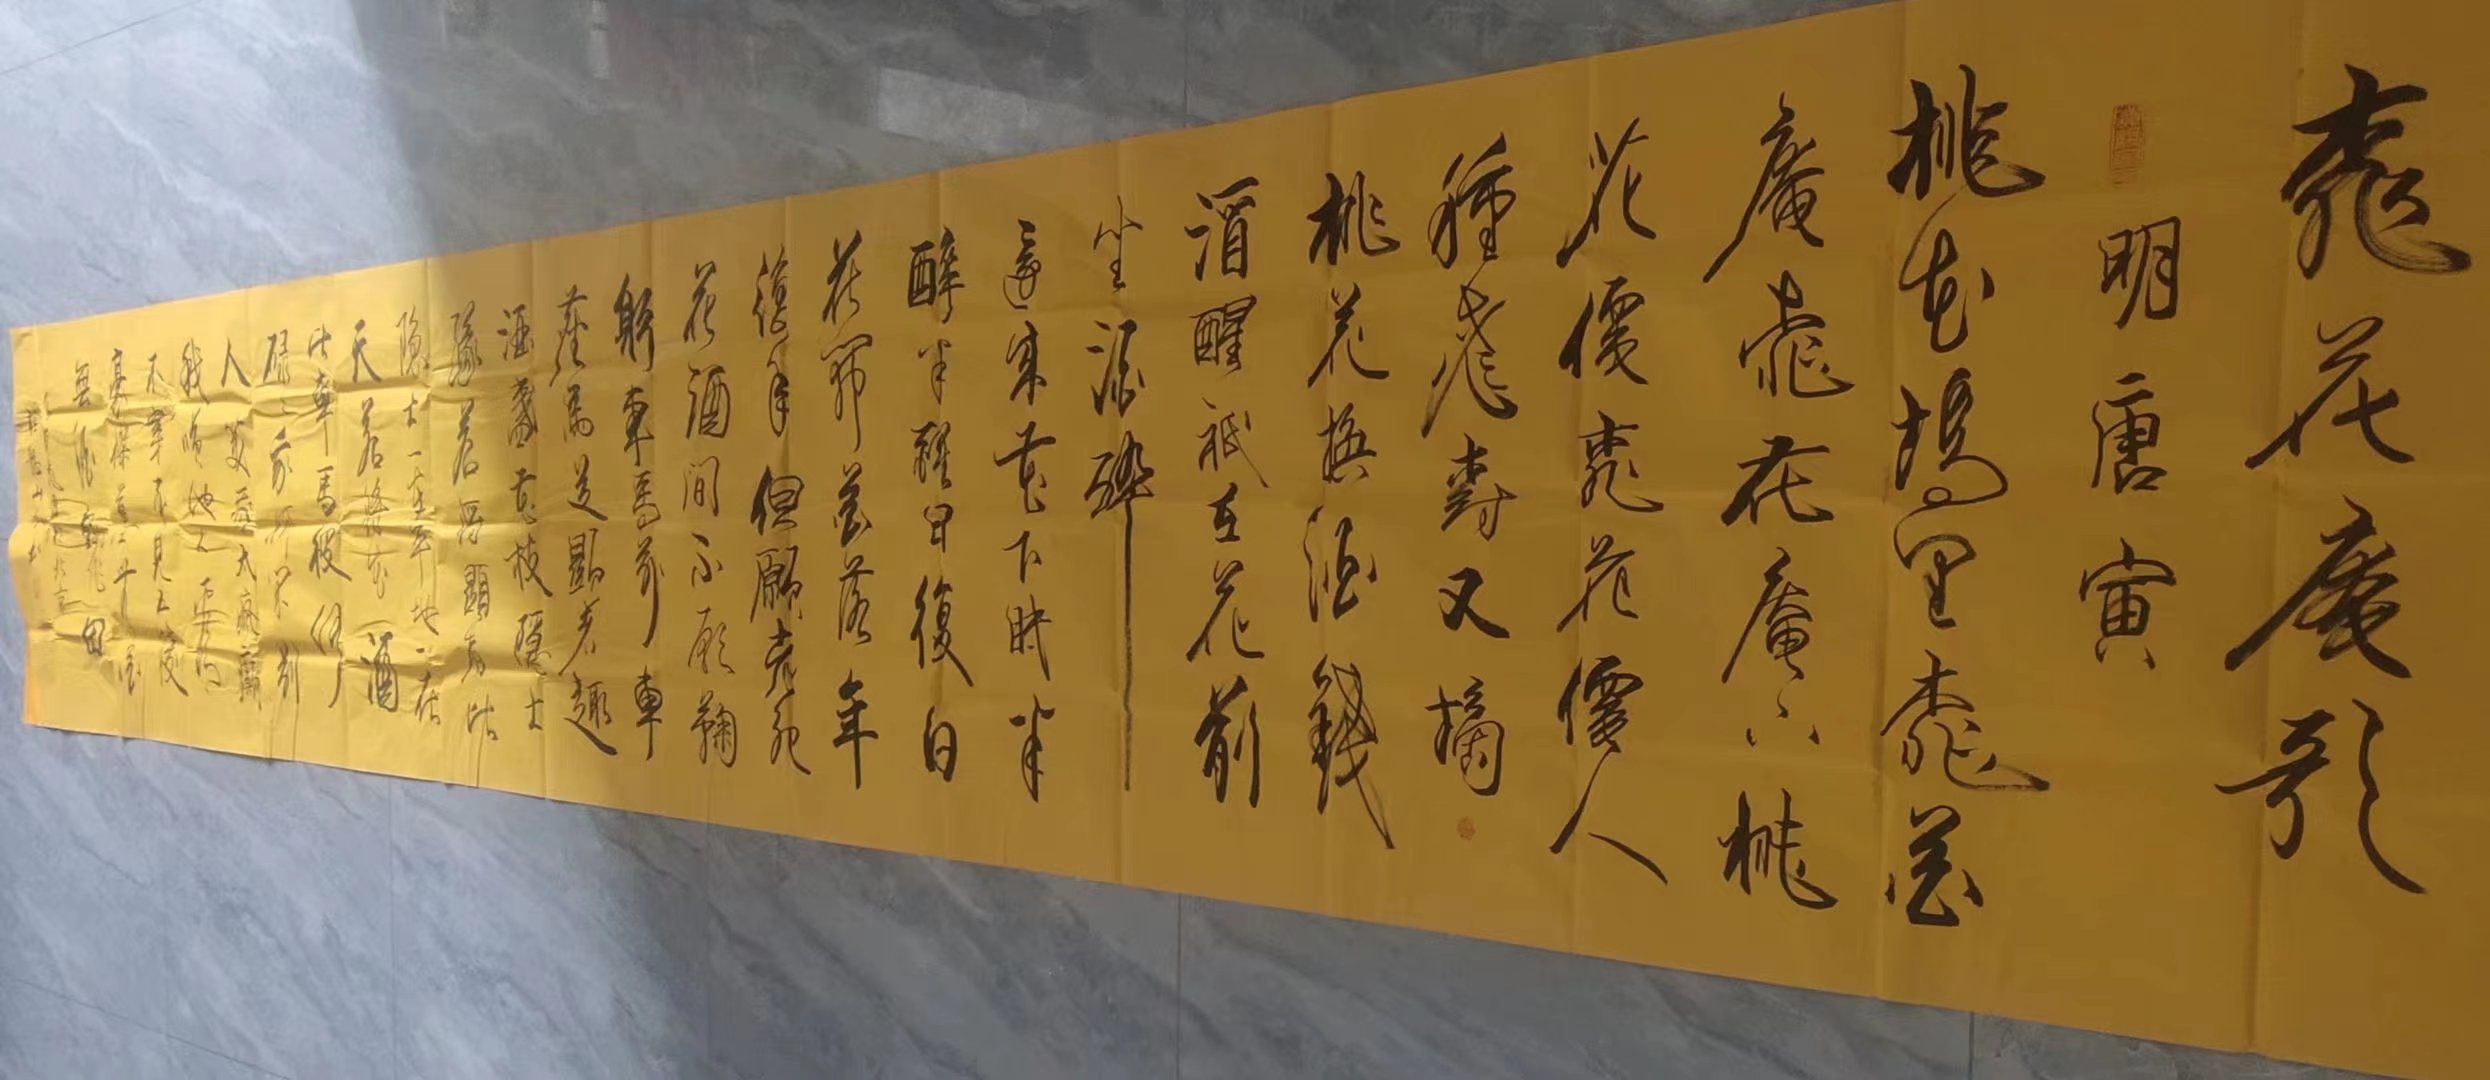 桃花庵歌
明唐寅
桃花塢里桃花
庵桃花庵下桃
花僊桃花僊人
種桃樹又摘
桃花換酒錢
酒醒祇在花前
坐酒醉
還來花下眠半
醉半醒日復日
花開花落年
復年但願老死
花酒間不願鞠
躬車馬前車
塵馬足顯者趣
酒盞花枝隱士
緣若將顯者比
隱士一在平地一在
天若將花酒
比車馬彼何
碌碌我何閑別
人笑我太瘋癲
我咲他人看
不穿不見五陵
豪傑墓無花
無酒鋤作田